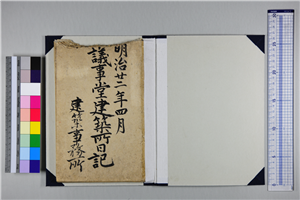 明治廿二年四月
議事堂建築所日記
建築事務所